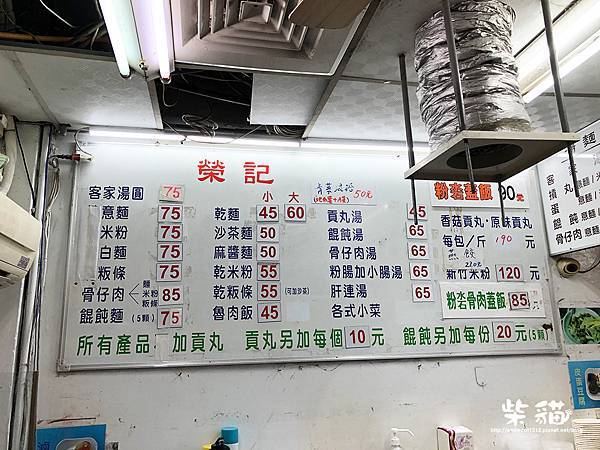 榮記
客家湯圓 75
意麵 75
米粉 75
白麵 75
粄條 75
骨仔肉 麵 米粉 粄條 85
餛飩麵 (5顆) 75
小 大
乾麵 45 60
沙茶麵 50
麻醬麵 50
乾米粉 55
乾粄條 55 (可加沙茶)
魯肉飯 45
50元
貢丸湯 45
餛飩湯 65
骨仔肉湯 65
粉腸加小腸湯 65
肝連湯 65
各式小菜
粉杏蓋飯 90元
香菇貢丸·原味貢丸
每包/斤 190 元
燕餃 220元
新竹米粉 120 元
粉杏骨肉蓋飯 85元
所有產品 加貢丸 貢丸另加每個 10 元 餛飩另加每份 20 元 (5顆)
麵
意麵
意麵
骨仔肉
皮蛋豆腐
柴貓